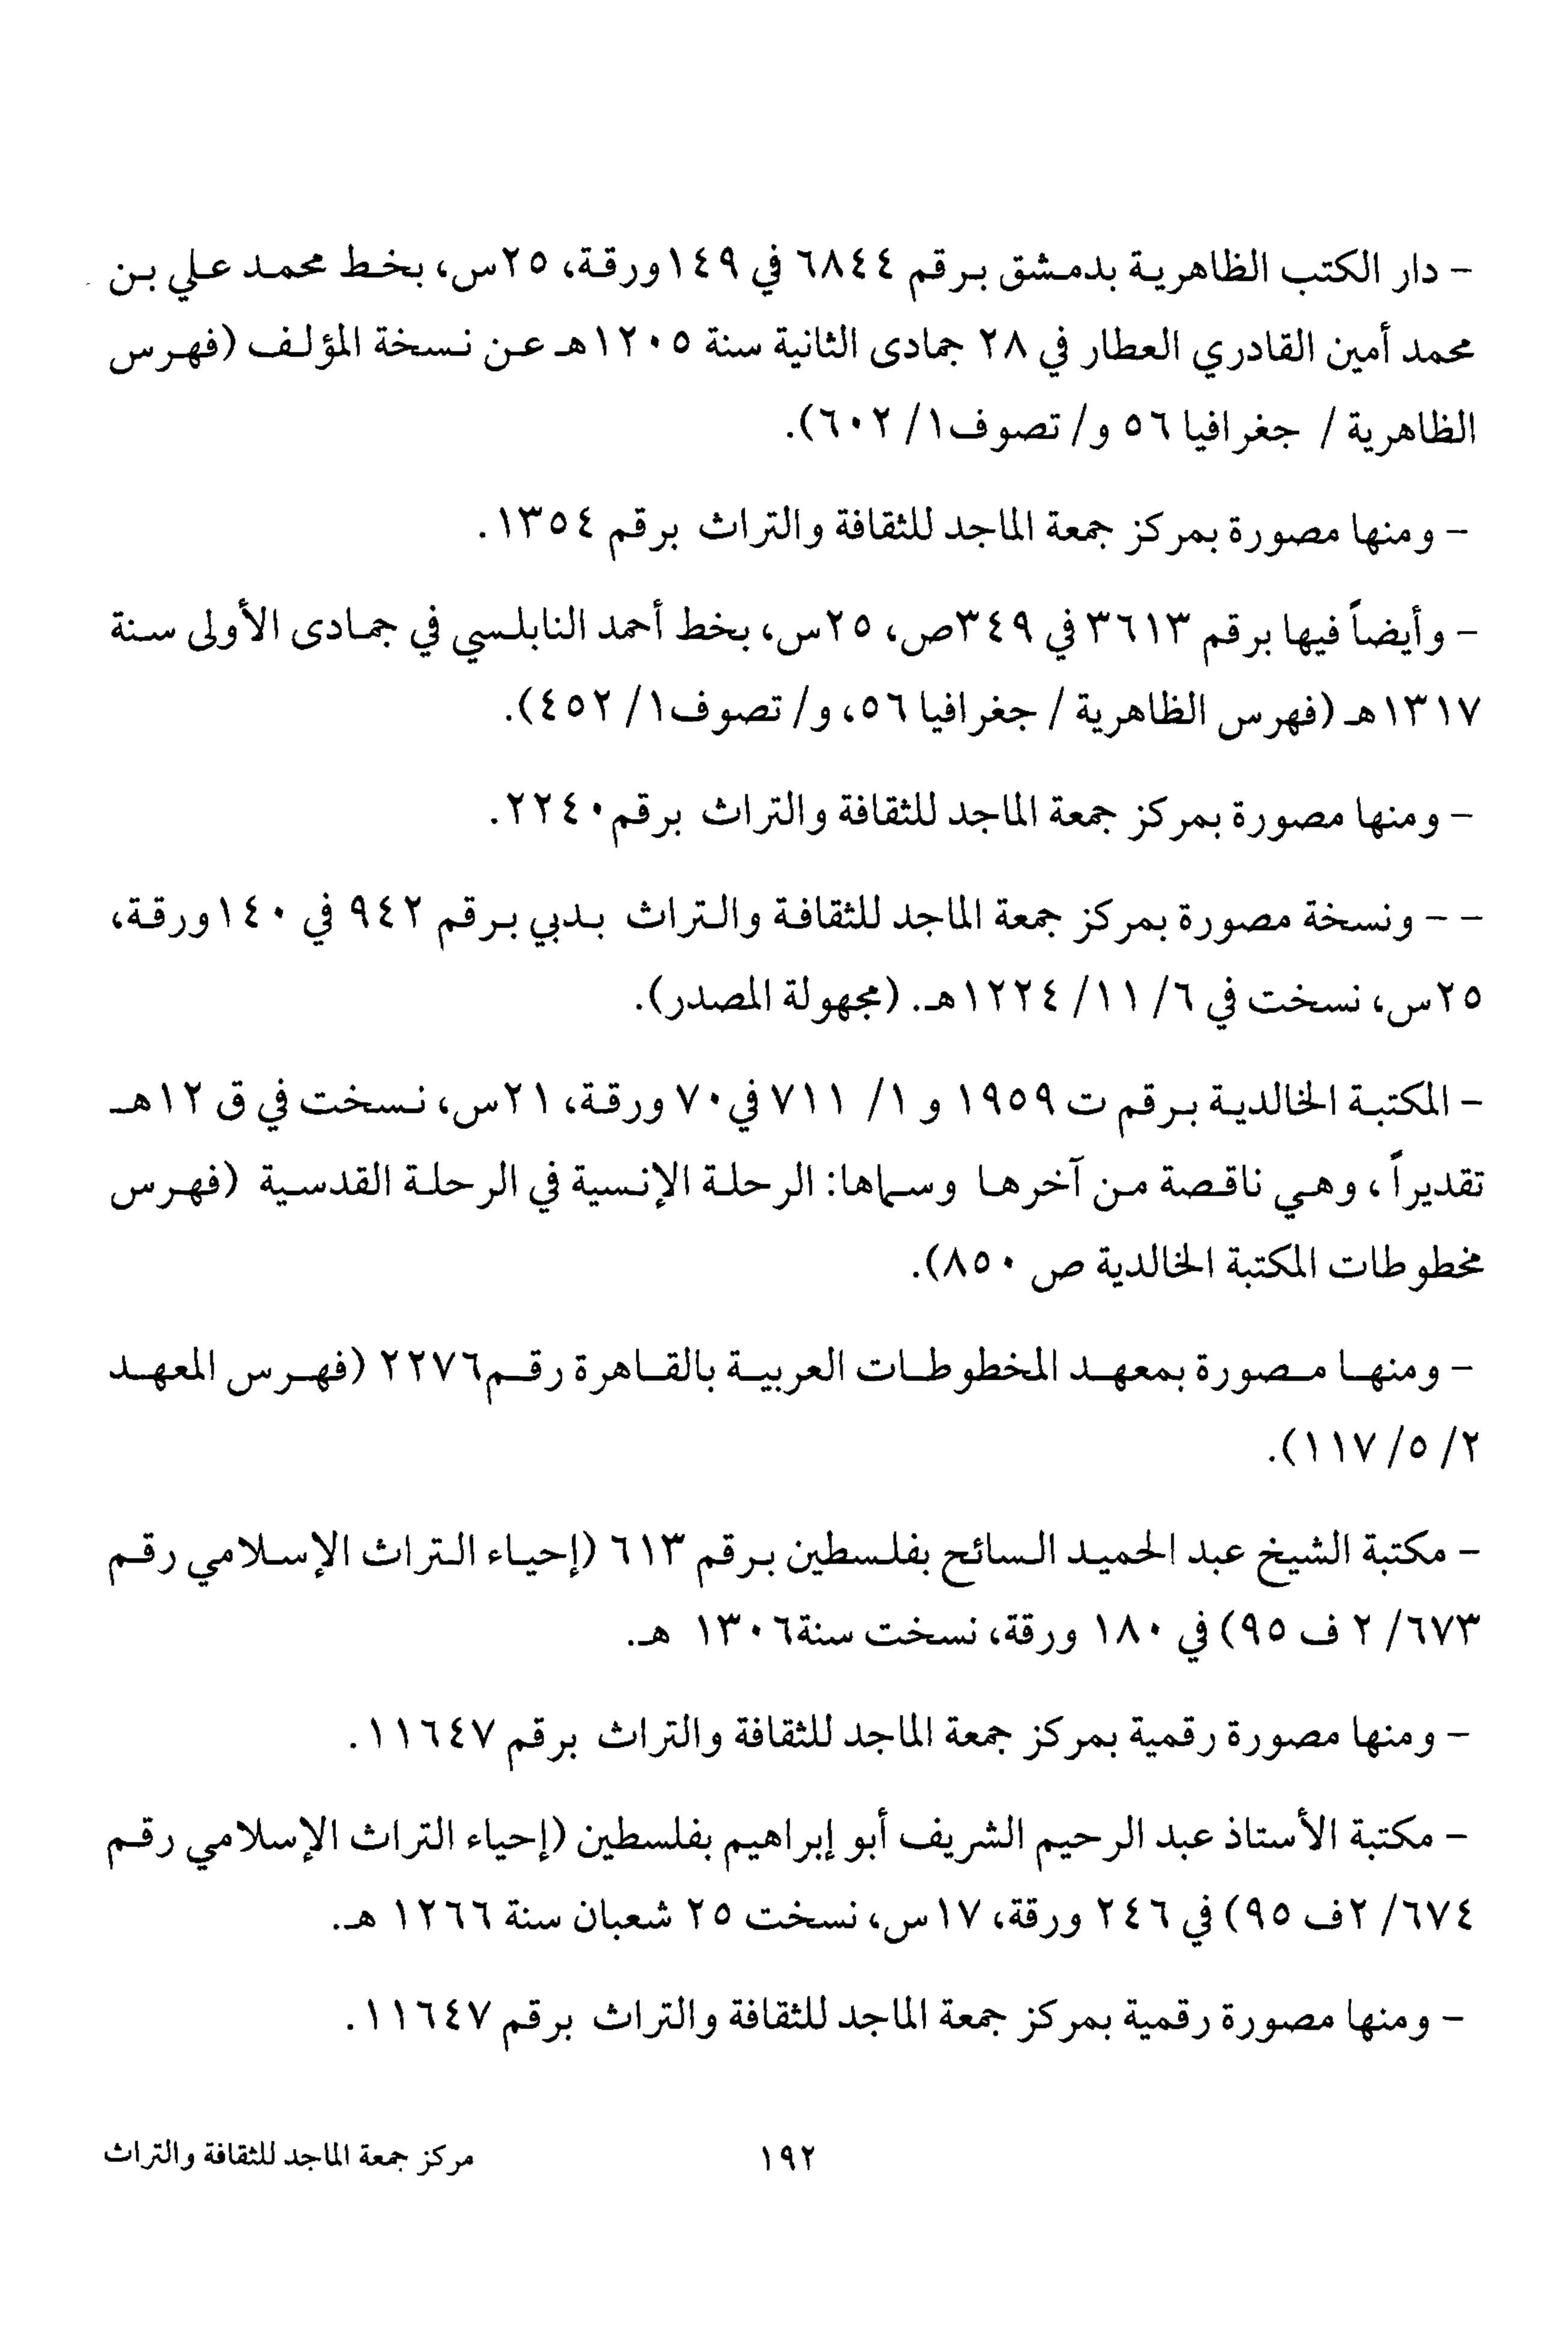 - دار الكتب الظاهرية بدمشق برقم ٦٨٤٤ في ١٤٩ورقة، ٢٥س، بخط محمد علي بن
محمد أمين القادري العطار في ٢٨ جمادى الثانية سنة ١٢٠٥هـ عن نسخة المؤلف (فهرس
الظاهرية / جغرافيا ٥٦ و/ تصوف١/ ٦٠٢).
- ومنها مصورة بمركز جمعة الماجد للثقافة والتراث برقم ١٣٥٤.
- وأيضاً فيها برقم ٣٦١٣ في ٣٤٩ص، ٢٥س، بخط أحمد النابلسي في جمادى الأولى سنة
١٣١٧هـ (فهرس الظاهرية / جغرافيا ٥٦، و/ تصوف١/ ٤٥٢).
- ومنها مصورة بمركز جمعة الماجد للثقافة والتراث برقم٢٢٤٠.
- - ونسخة مصورة بمركز جمعة الماجد للثقافة والتراث بدبي برقم ٩٤٢ في ١٤٠ورقة،
٢٥س، نسخت في ٦/ ١١/ ١٢٢٤هـ. (مجهولة المصدر).
- المكتبة الخالدية برقم ت ١٩٥٩ و ١/ ٧١١ في٧٠ ورقة، ٢١س، نسخت في ق ١٢هـ
تقديراً، وهي ناقصة من آخرها وسماها: الرحلة الإنسية في الرحلة القدسية (فهرس
مخطوطات المكتبة الخالدية ص ٨٥٠).
- ومنها مصورة بمعهد المخطوطات العربية بالقاهرة رقم٢٢٧٦ (فهرس المعهد
٢/ ٥/ ١١٧).
- مكتبة الشيخ عبد الحميد السائح بفلسطين برقم ٦١٣ (إحياء التراث الإسلامي رقم
٦٧٣/ ٢ ف ٩٥) في ١٨٠ ورقة، نسخت سنة١٣٠٦ هـ.
- ومنها مصورة رقمية بمركز جمعة الماجد للثقافة والتراث برقم ١١٦٤٧.
- مكتبة الأستاذ عبد الرحيم الشريف أبو إبراهيم بفلسطين (إحياء التراث الإسلامي رقم
٦٧٤/ ٢ف ٩٥) في ٢٤٦ ورقة، ١٧س، نسخت ٢٥ شعبان سنة ١٢٦٦ هـ.
- ومنها مصورة رقمية بمركز جمعة الماجد للثقافة والتراث برقم ١١٦٤٧.
١٩٢
مركز جمعة الماجد للثقافة والتراث